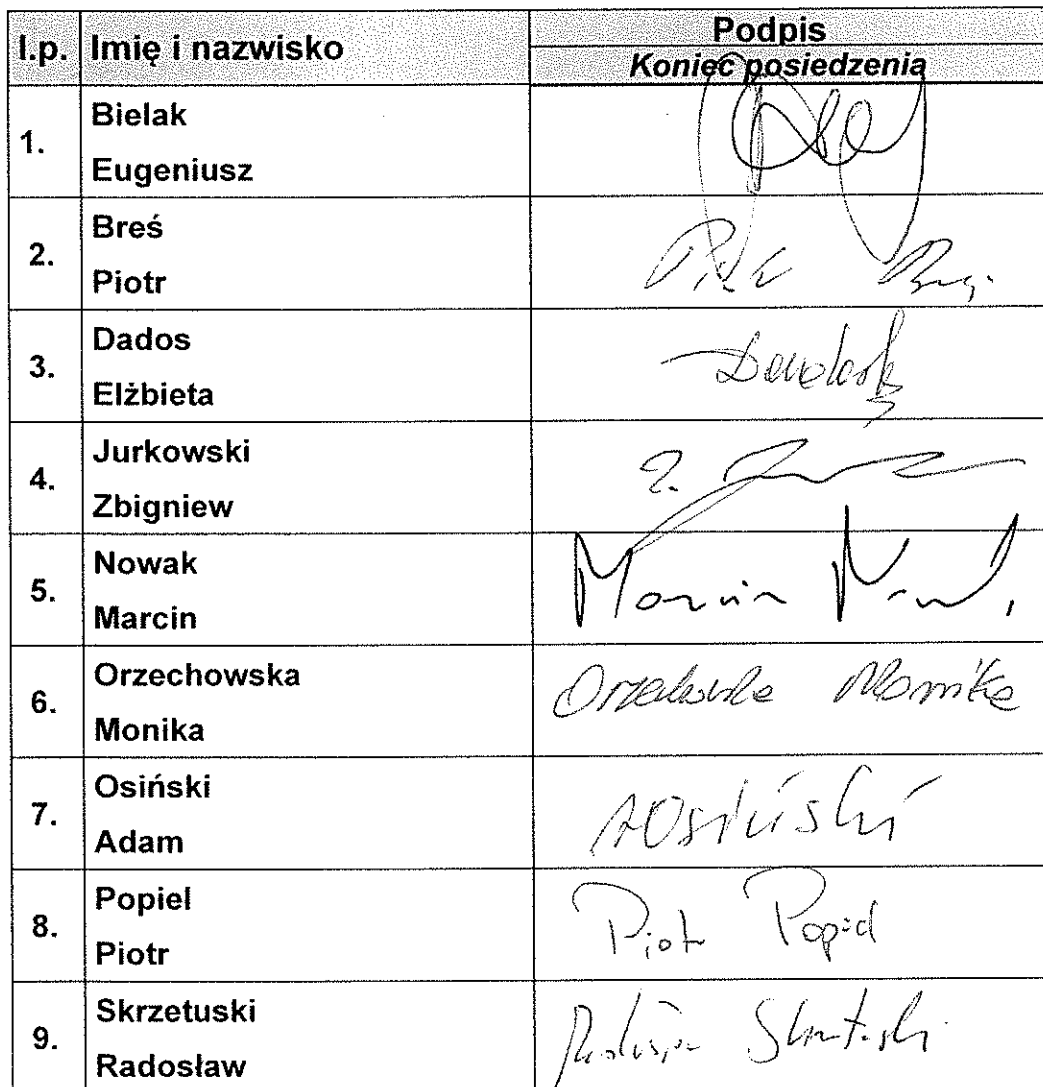 l.p. Imię i nazwisko Podpis
Koniec posiedzenia
1. Bielak
Eugeniusz
2. Breś
Piotr
3. Dados
Elżbieta
4. Jurkowski
Zbigniew
5. Nowak
Marcin
Marcin
6. Orzechowska
Monika
Orzechowska Monika
7. Osiński
Adam
AOsiński
8. Popiel
Piotr
Piotr Popiel
9. Skrzetuski
Radosław